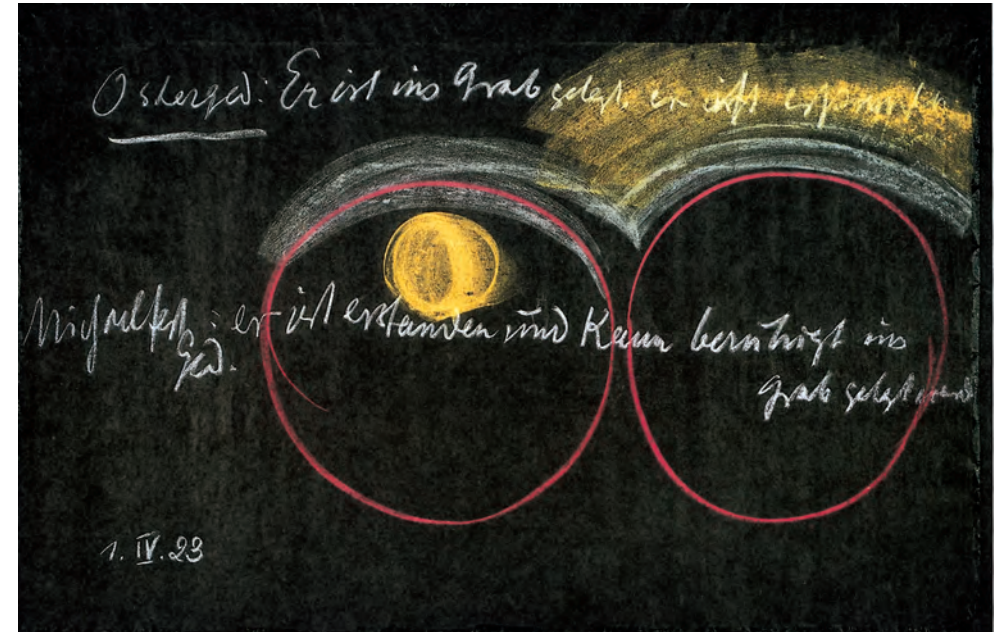 Osterged: Er ist ins Grab gelegt er ist erstanden
Michaelfest : er ist erstanden und kann beruhigt ins
Ged.
Grab gelegt werd
1. IV. 23